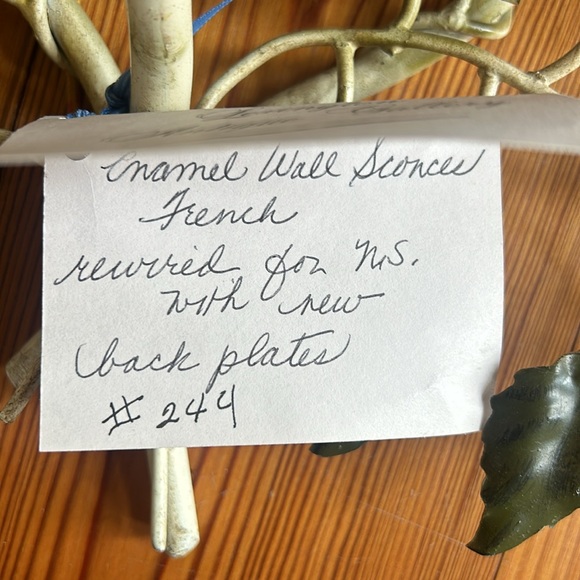 Enamel Wall Sconces
French
rewired for N.S.
with new
back plates
# 244